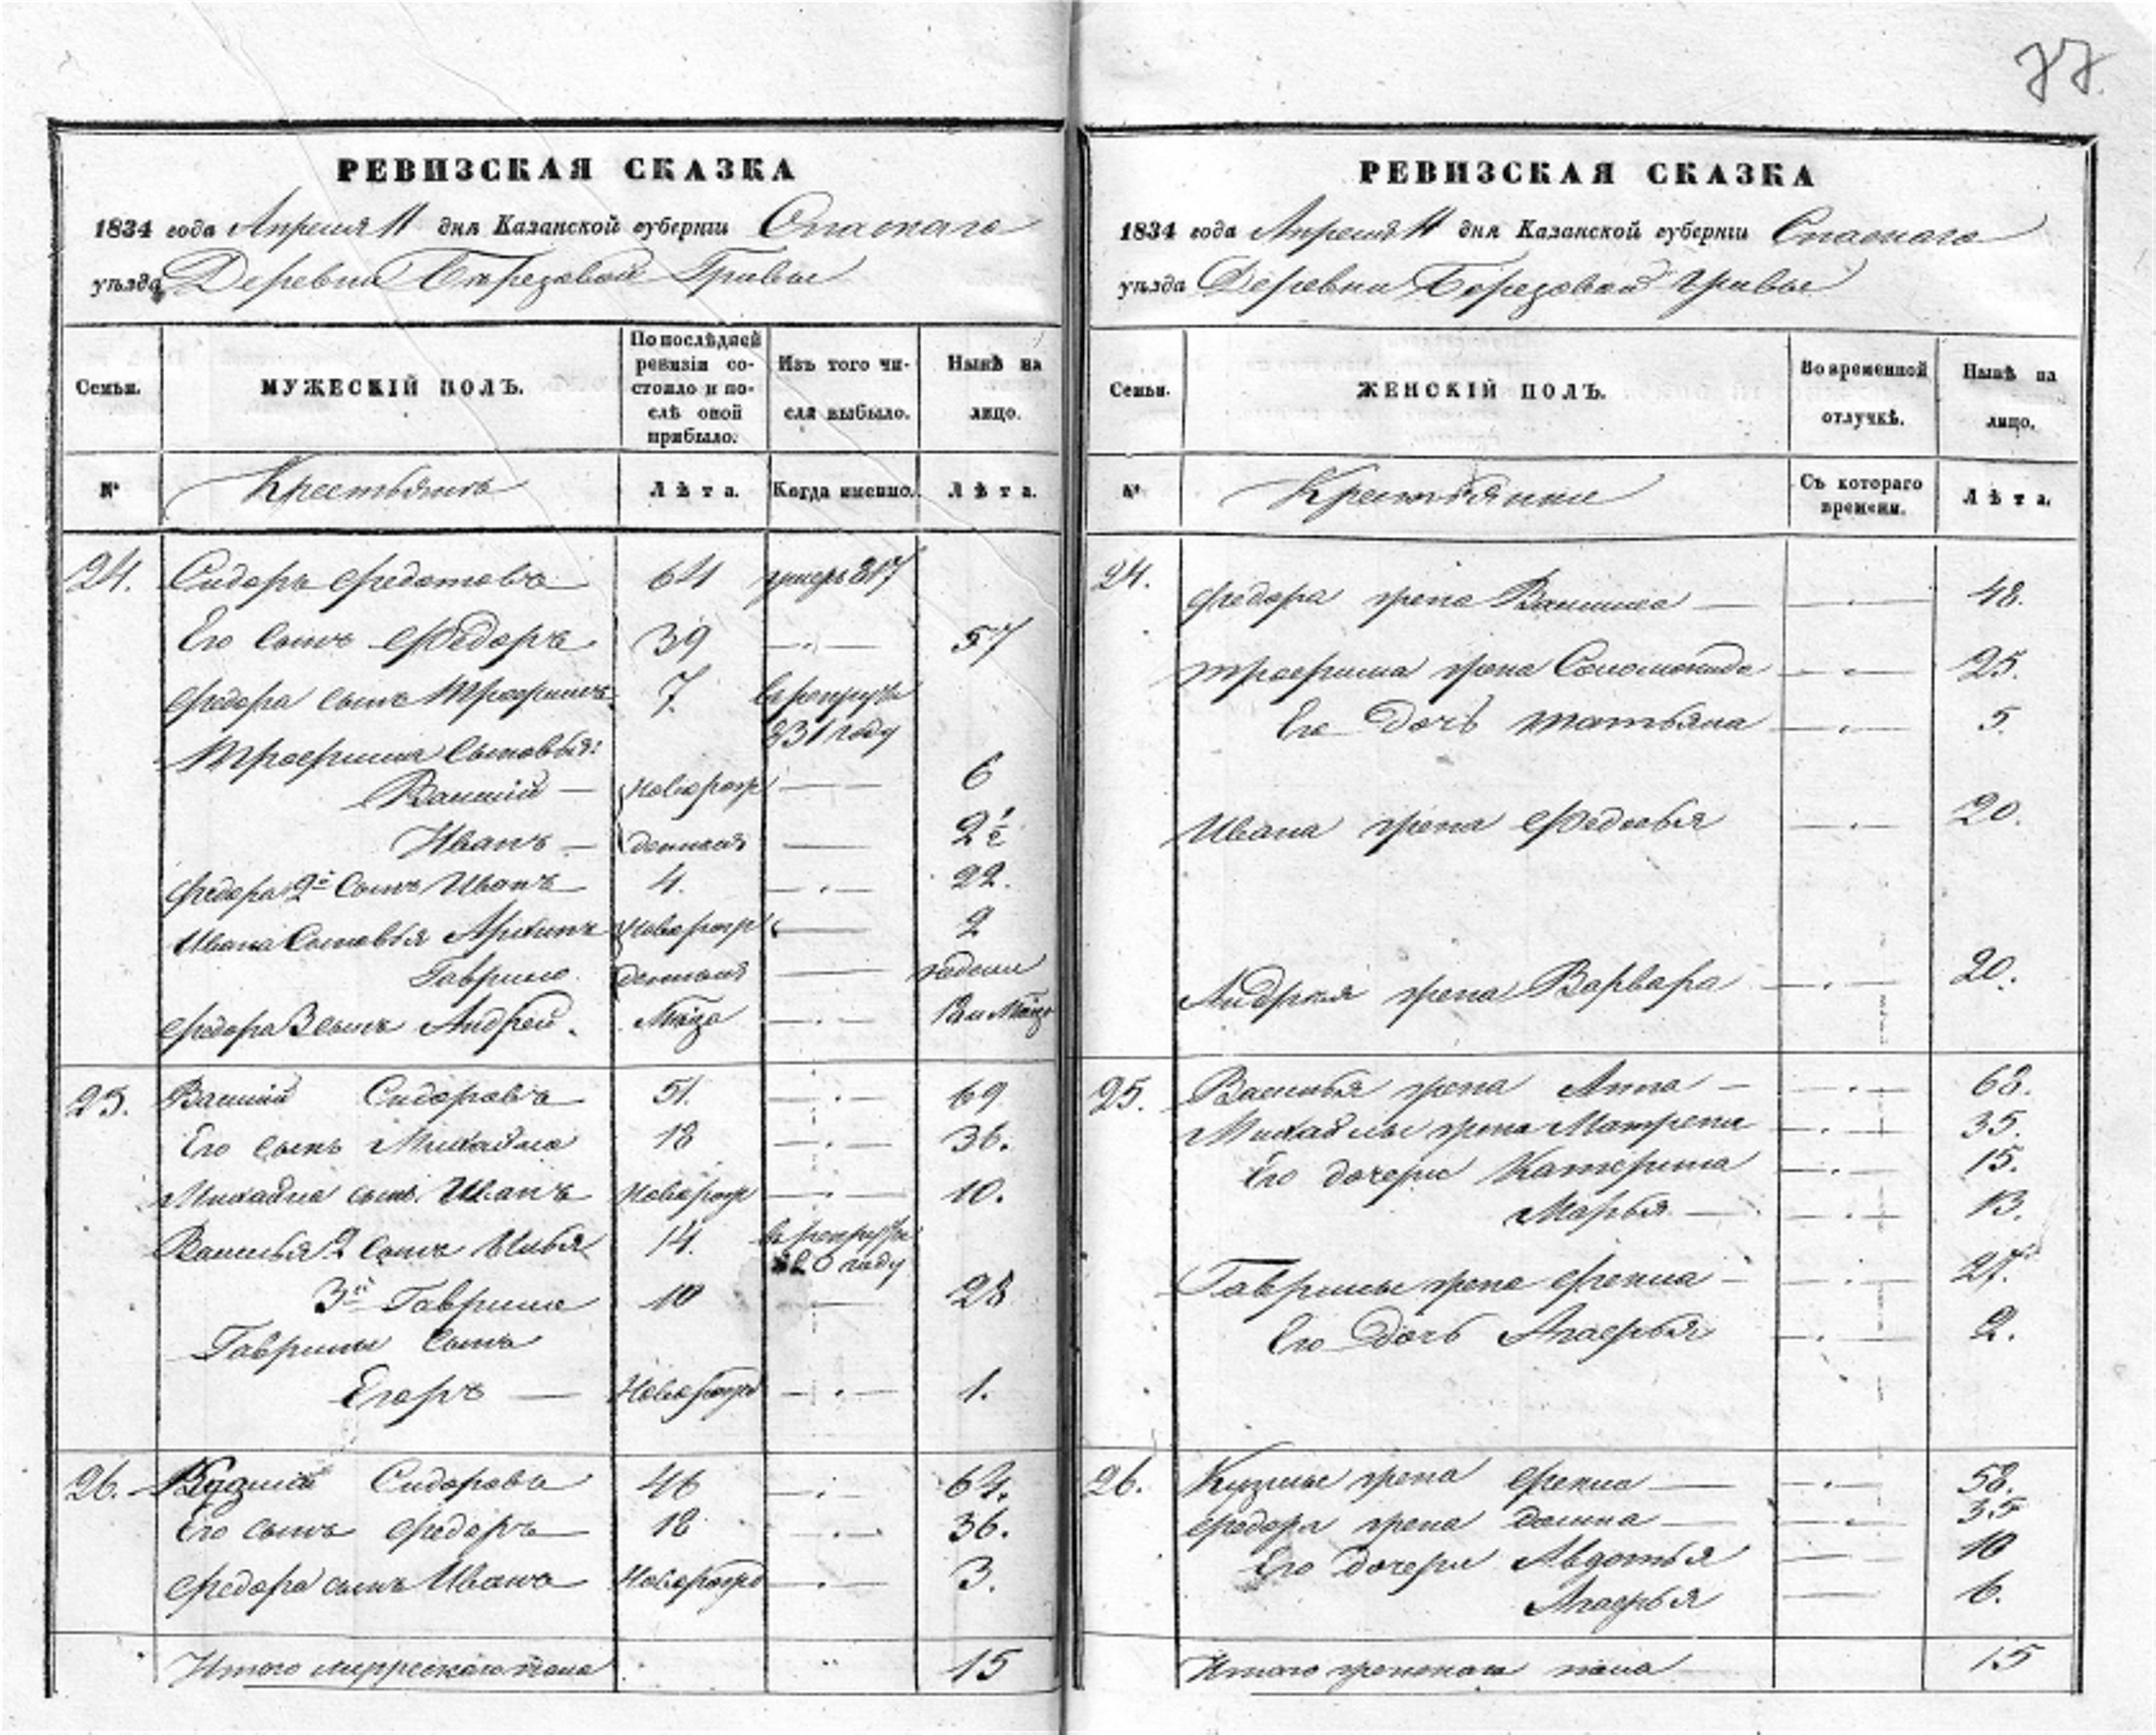 77.
РЕВИЗСКАЯ СКАЗКА
1834 года Апреля 11 дня Казанской губерніи Спаскаго
уѣзда Деревни Березовой Гривы
Семьи.
МУЖЕСКІЙ ПОЛЪ.
По послѣдней
ревизіи со-
стояло и по-
слѣ оной
прибыло.
Изъ того чи-
сла выбыло.
Нынѣ на
лицо.
№
Крестьянъ
Лѣта.
Когда именно.
Лѣта.
24. Сидоръ Федотовъ 64 умеръ 817
Его сынъ Федоръ 39 — 57
Федора сынъ Трофимъ 7. в рекруты
831 году
Трофима сыновья:
Василій — новорож 6
Иванъ — денныя — 2 1/2
Федора 2й сынъ Иванъ 4. — 22.
Ивана сыновья Архипъ новорож — 2
Гаврило денныя — недели
Федора 3 сынъ Андрей.
25. Василий Сидоровъ 51. — 69
Его сынъ Михайла 18 — 36.
Михайла сынъ Иванъ новорож — 10.
Василья 2 сынъ Илья 14. в рекруты
826 году
3й Гаврила 10 — 28
Гаврилы сынъ
Егоръ — новорож — 1.
26. Кузма Сидоровъ 46 — 64.
Его сынъ Федоръ 18 — 36.
Федора сынъ Иванъ новорож — 3.
Итого мужескаго пола 15
РЕВИЗСКАЯ СКАЗКА
1834 года Апреля 11 дня Казанской губерніи Спаскаго
уѣзда Деревни Березовой Гривы
Семьи.
ЖЕНСКІЙ ПОЛЪ.
Во временной
отлучкѣ.
Нынѣ на
лицо.
№
Крестьянки
Съ котораго
времени.
Лѣта.
24. Федора жена Василиса — 48.
Трофима жена Соломонида — 25.
Его дочь Татьяна — 5.
Ивана жена Федосья — 20.
Андрея жена Варвара — 20.
25. Василья жена Анна — 68.
Михайлы жена Матрена — 35.
Его дочери Катерина — 15.
Марья — 13.
Гаврилы жена Фекла — 27.
Его дочь Агафья — 2.
26. Кузмы жена Фекла — 58.
Федора жена Домна — 35
Его дочери Авдотья — 10
Агафья — 6.
Итого женскаго пола 15